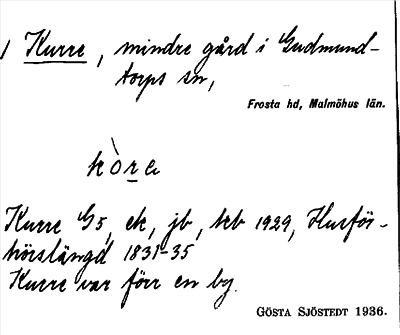 / Kurre, mindre gård i Gudmund-
torps sn,
Frosta hd, Malmöhus län.
kòra
Kurre G5, ek, jb, krb 1929, Husför-
hörslängd 1831-35
Kurre var förr en by.
GÖSTA SJÖSTEDT 1936.